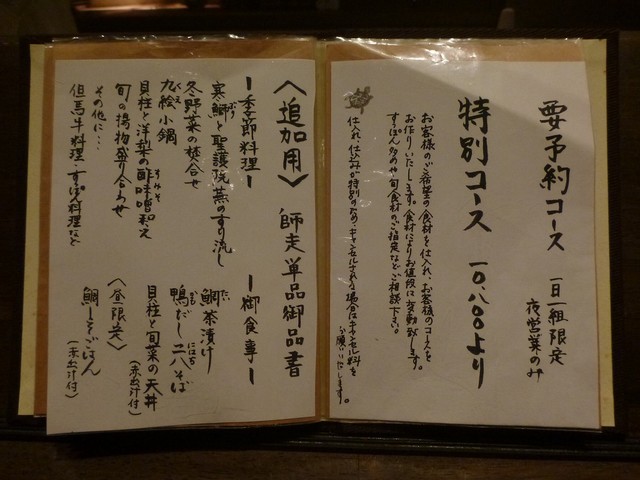 要予約コース 一日一組限定
夜営業のみ
特別コース 一〇、八〇〇より
お客様のご希望の食材を仕入れ、お客様のコースを
お作りいたします。食材によりお値段に変動致します。
すっぽんや旬食材のご指定などご相談下さい。
仕入れ、仕込みが特別のため、キャンセルされる場合はキャンセル料を
お願いいたします。
〈追加用〉 師走単品御品書
ー季節料理ー
寒鰤と聖護院蕪のすり流し
冬野菜の焚合せ
九絵小鍋
貝柱と洋梨の酢味噌和え
旬の揚物盛り合わせ
その他に…
但馬牛料理・すっぽん料理など
ー御食事ー
鯛茶漬け
鴨だし二八そば
貝柱と旬菜の天丼
(赤出汁付)
〈昼限定〉
鯛しそごはん
(赤出汁付)